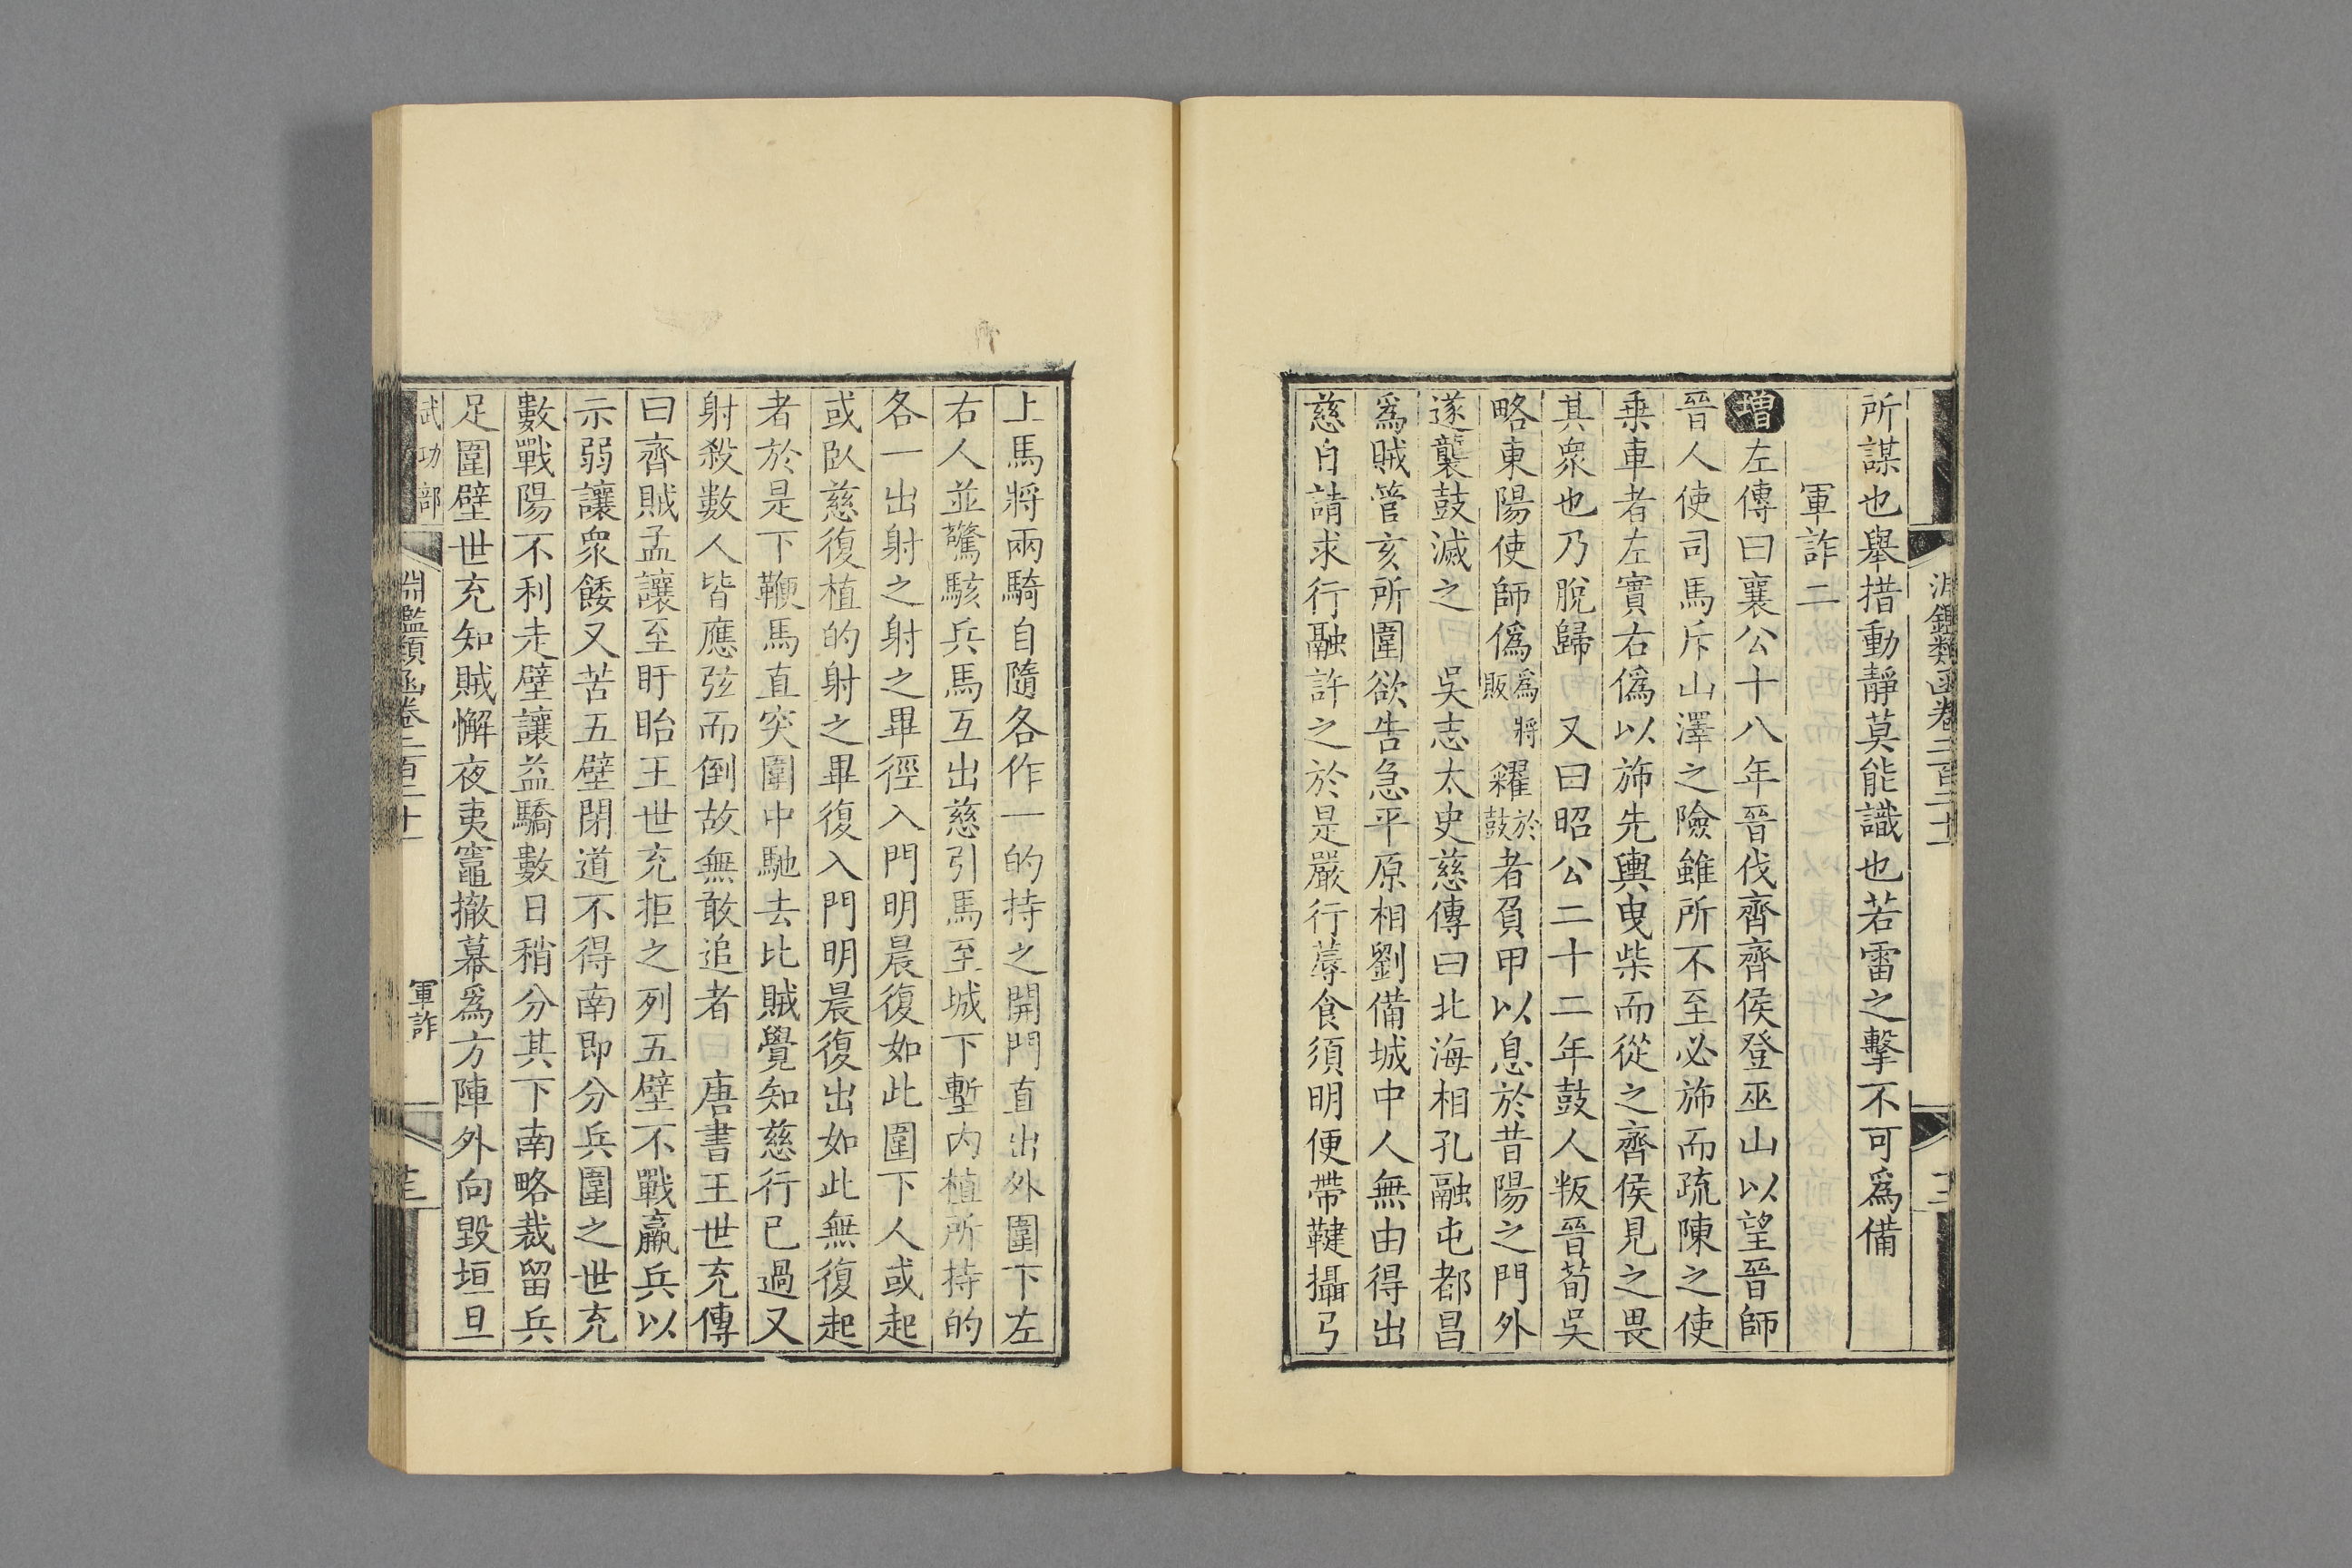 所謀也舉措動靜莫能識也若雷之擊不可爲備
軍詐二
增左傳曰襄公十八年晉伐齊齊侯登巫山以望晉師
晉人使司馬斥山澤之險雖所不至必斾而疏陳之使
乗車者左實右僞以斾先輿曳柴而從之齊侯見之畏
其衆也乃脫歸　又曰昭公二十二年鼓人叛晉荀吳
略東陽使師僞爲將販糴於鼓者負甲以息於昔陽之門外
遂襲鼓滅之　吳志太史慈傳曰北海相孔融屯都昌
爲賊管亥所圍欲告急平原相劉備城中人無由得出
慈自請求行融許之於是嚴行蓐食須明便帶鞬攝弓
上馬將兩騎自隨各作一的持之開門直出外圍下左
右人並驚駭兵馬互出慈引馬至城下塹内植所持的
各一出射之射之畢徑入門明晨復如此圍下人或起
或臥慈復植的射之畢復入門明晨復出如此無復起
者於是下鞭馬直突圍中馳去比賊覺知慈行已過又
射殺數人皆應弦而倒故無敢追者　唐書王世充傳
曰齊賊孟讓至盱眙王世充拒之列五壁不戰羸兵以
示弱讓衆餧又苦五壁閉道不得南即分兵圍之世充
數戰陽不利走壁讓益驕數日稍分其下南略裁留兵
足圍壁世充知賊懈夜夷竈撤幕爲方陣外向毀垣旦
武功部
淵鑑類函卷二百二十
軍詐